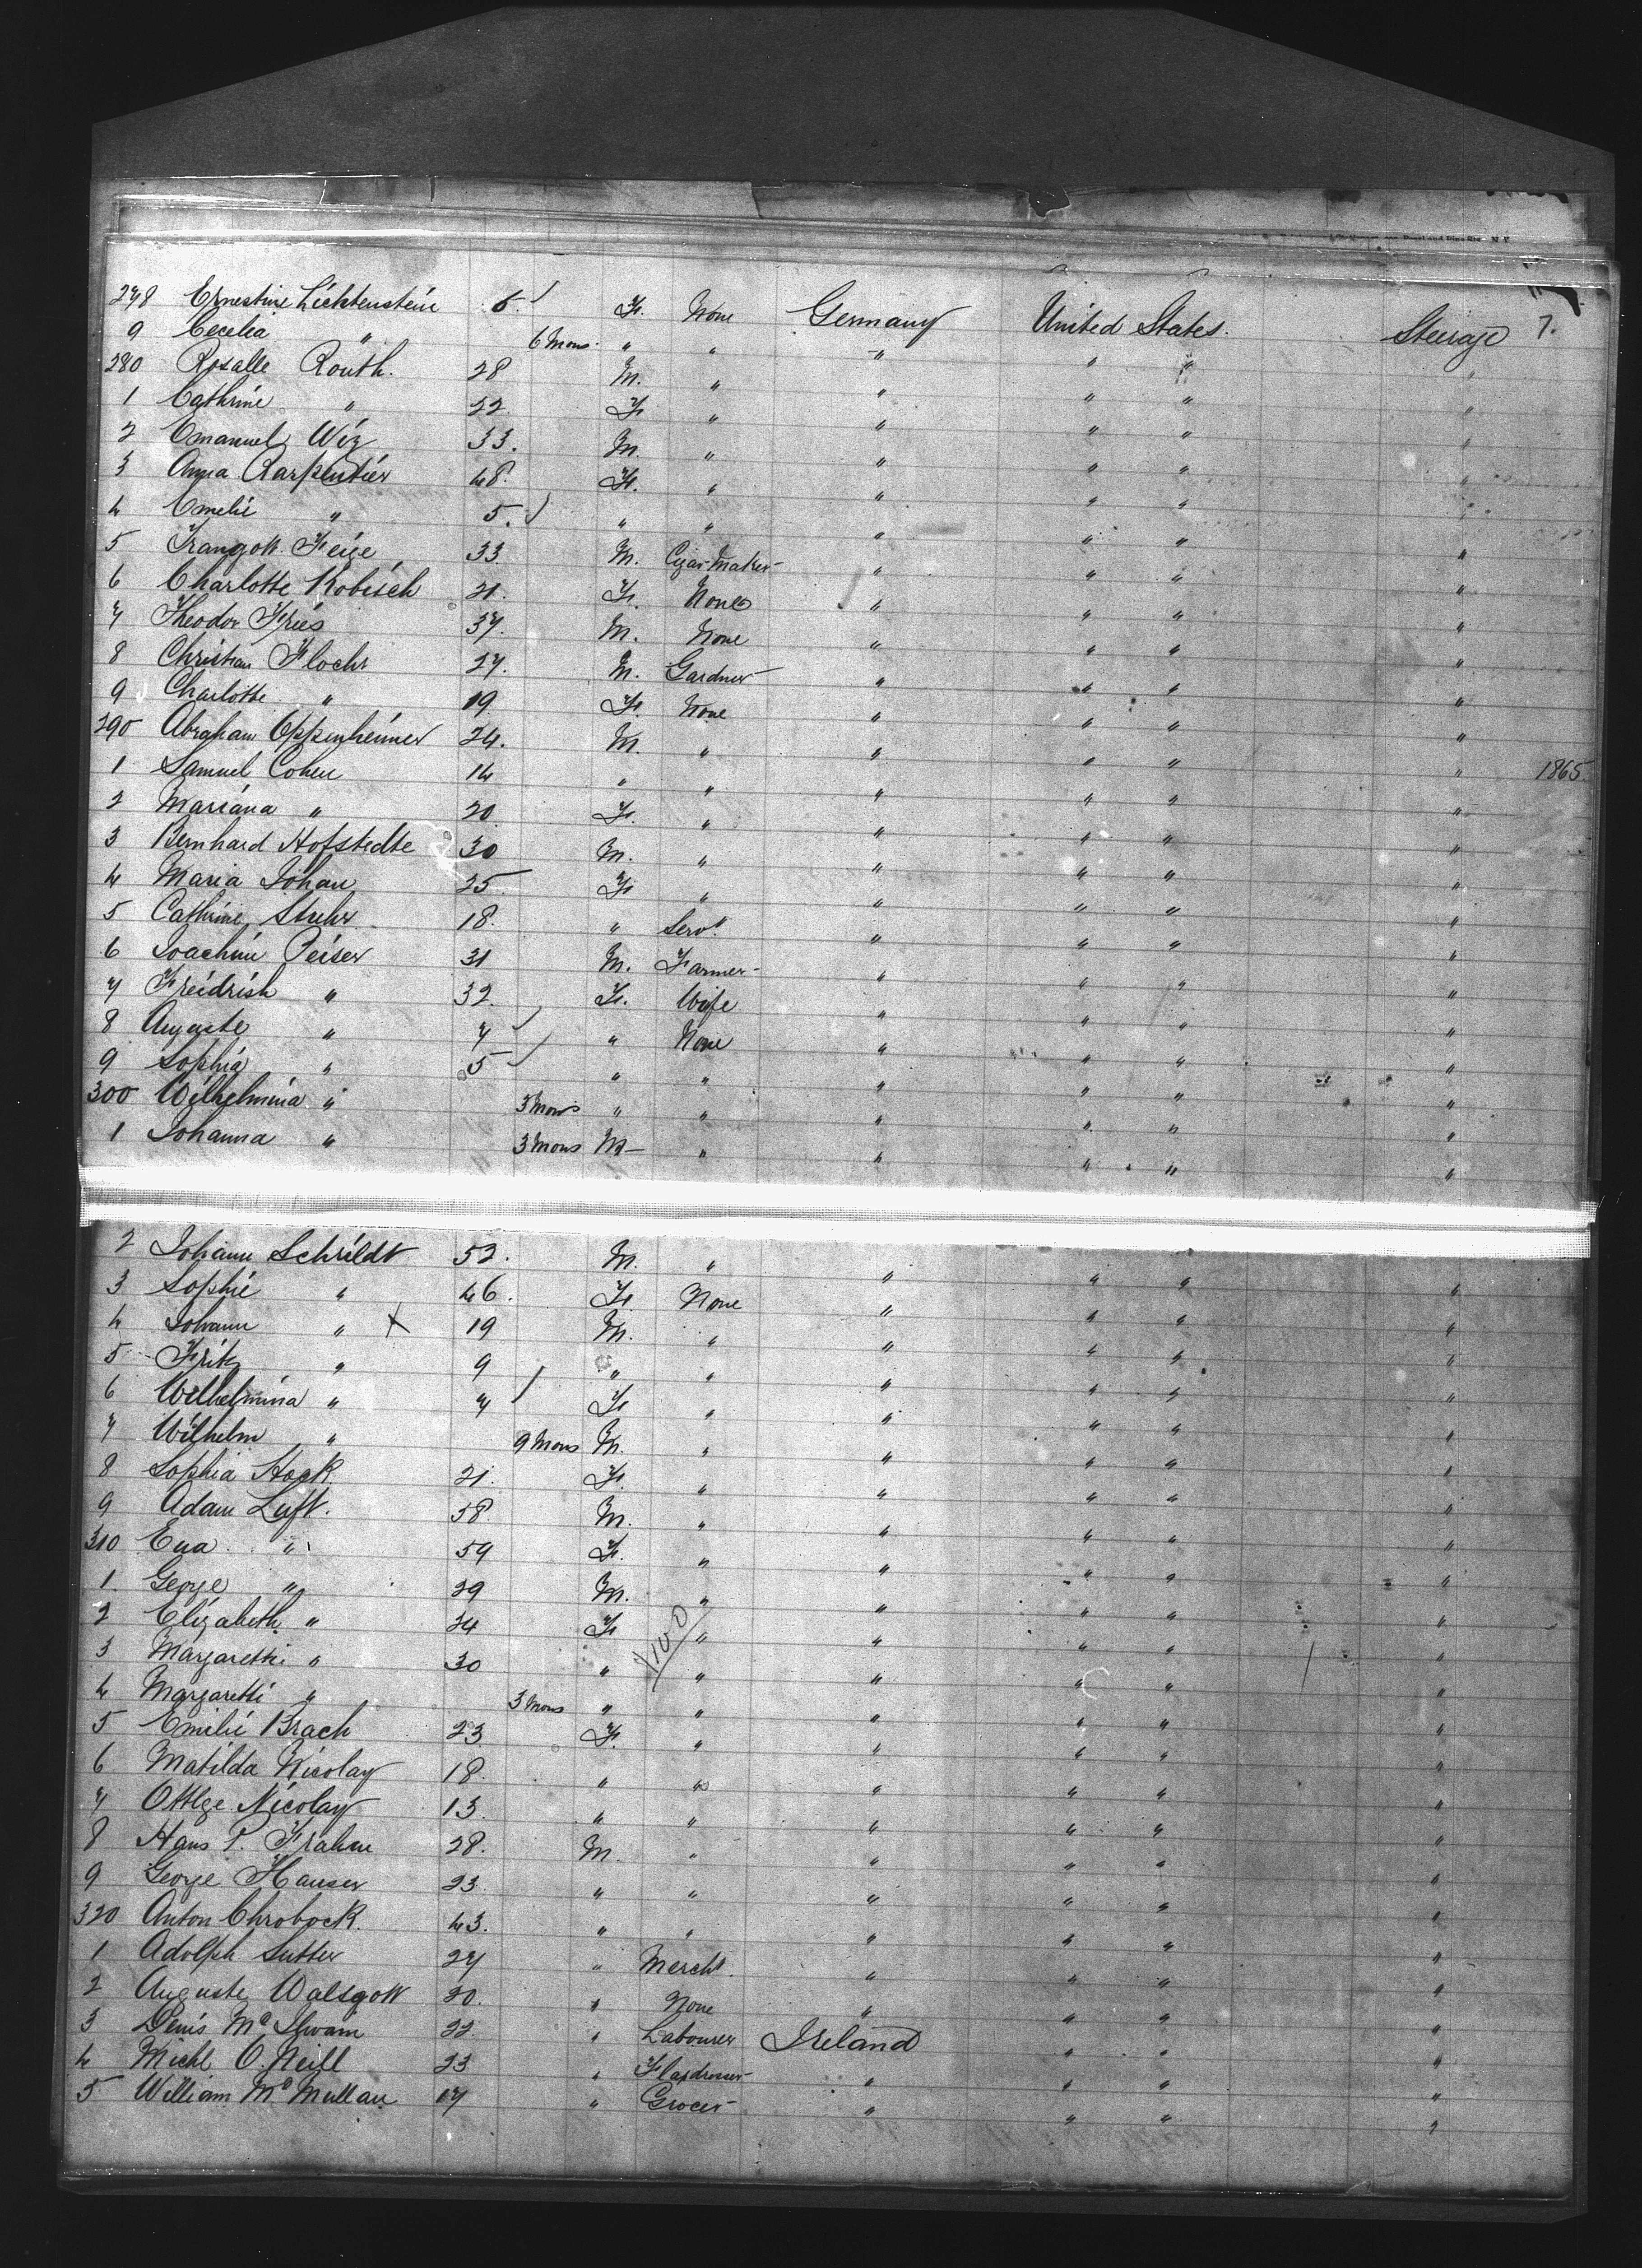 278 Ernestine Lichtenstein 6 F. None Germany United States. Steerage 7.
9 Cecelia " 6 Mons " " " " " "
280 Rosalle Routh. 28 M. " " " " "
1 Cathrine " 22 F " " " " "
2 Emanuel Wiz 33. M. " " " " "
3 Anna Carpentier 48. F. " " " " "
4 Emelie " 5. " " " " " "
5 Trangott Feige 33. M. Cigar Maker " " " "
6 Charlotte Kobisch 21. F. None " " " "
7 Theodor Fries 37. M. None " " " "
8 Christian Flochr 27. M. Gardner " " " "
9 Charlotte " 19. F. None " " " "
290 Abraham Oppenheimer 24. M. " " " " "
1 Samuel Cohen 14 " " " " " " 1865
2 Mariana " 20 F. " " " " "
3 Bernhard Hofstedte 30 M. " " " " "
4 Maria Johan 25 F " " " " "
5 Cathrine Stuhr 18. " Servt. " " " "
6 Joachim Peiser 31 M. Farmer " " " "
7 Freidrish " 32. F. Wife " " " "
8 Auguste " 7 " None " " " "
9 Sophia " 5 " " " " " "
300 Wilhelmina " 3 Mons " " " " " "
1 Johanna " 3 Mons M " " " " "
2 Johann Schrildt 52. M. " " " " "
3 Sophie " 46. F. None " " " "
4 Johann " X 19 M. " " " " "
5 Fritz " 9 " " " " " "
6 Wilhelmina " 7 F " " " " "
7 Wilhelm " 9 Mons M. " " " " "
8 Sophia Hock. 21. F. " " " " "
9 Adam Luft. 58 M. " " " " "
310 Eva " 59 F. " " " " "
1. George " 29 M. " " " " "
2 Elizabeth " 24 F " " " " "
3 Margaretti " 30 " " " " " "
4 Margaretti " 3 Mons " " " " " "
5 Emilie Brach 23. F. " " " " "
6 Matilda Nicolay 18. " " " " " "
7 Ottlge Nicolay 13. " " " " " "
8 Hans P. Frahm 28. M. " " " " "
9 George Hauser 23. " " " " " "
320 Anton Chrobock. 43. " " " " " "
1 Adolph Sutter 27 " Mercht. " " " "
2 Auguste Walsgott 20. " None " " " "
3 Denis Mc Ilwain 22. " Labourer Ireland " " "
4 Michl O. Neill 23 " Flaxdresser " " " "
5 William Mc Mullan 17 " Grocer " " " "